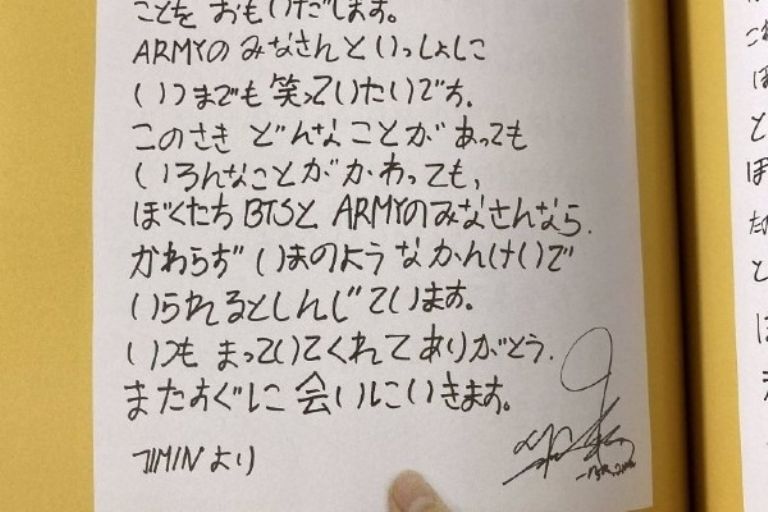 ことを おもいだします。
ARMYの みなさんと いっしょに
いつまでも 笑っていたいです。
このさき どんなことが あっても
いろんなことが かわっても、
ぼくたち BTSと ARMYのみなさんなら、
かわらず いまのような かんけいで
いられるとしんじています。
いつも まっていてくれて ありがとう。
またすぐに 会いにいきます。
JIMINより